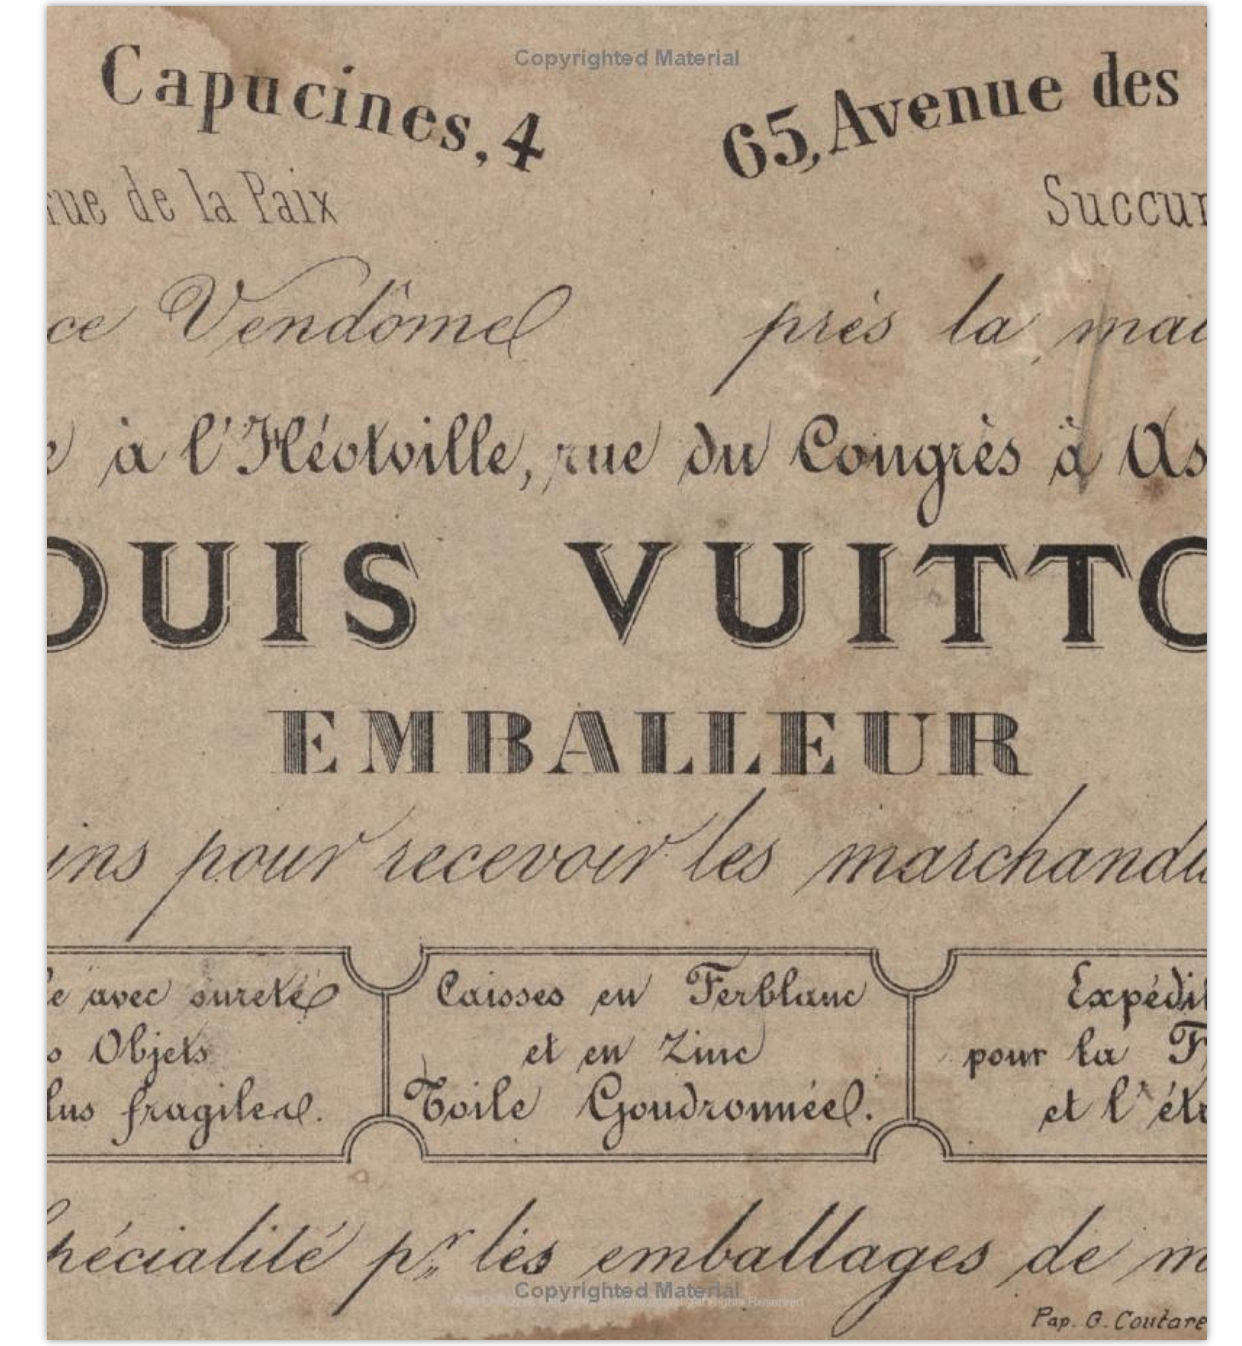 Copyrighted Material
Capucines, 4
65, Avenue des
rue de la Paix
Succur
ce Vendôme
près la mai
à l'Héotville, rue du Congrès à As
OUIS VUITTO
EMBALLEUR
ins pour recevoir les marchandi
é avec sureté
Objets
lus fragiles.
Caisses en Ferblanc
et en Zinc
Toile Goudronnée.
Expédit
pour la F
et l'étr
pécialité pr les emballages de m
Copyrighted Material
Pap. G. Coutare